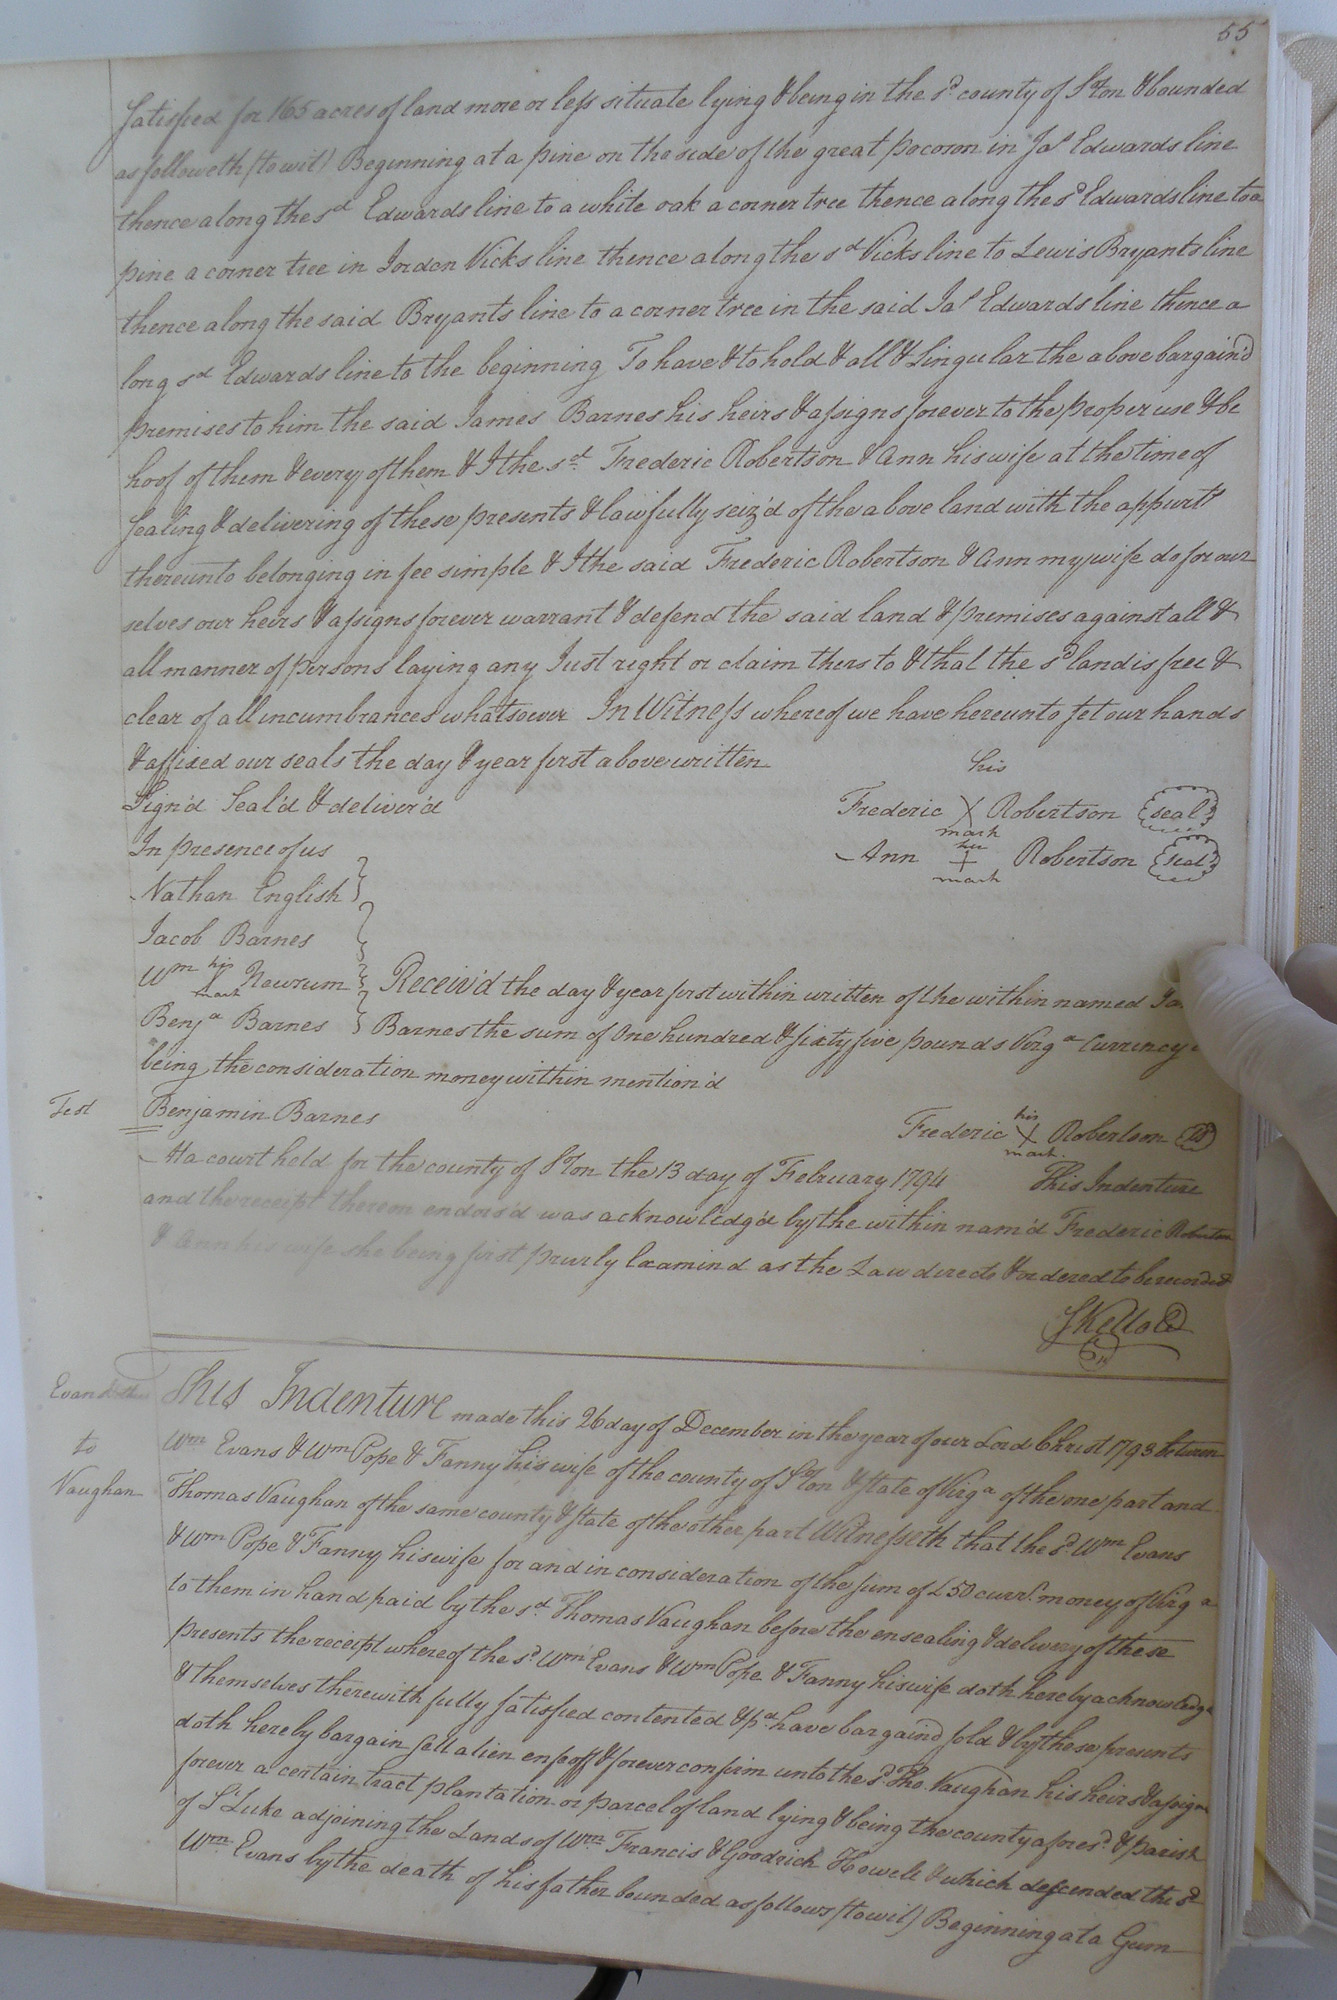 55
satisfied for 165 acres of land more or less situate lying & being in the sd county of Ston & bounded
as followeth (to wit) Beginning at a pine on the side of the great pocoson in Jas Edwards line
thence along the sd Edwards line to a white oak a corner tree thence along the sd Edwards line to a
pine a corner tree in Jordon Vicks line thence along the sd Vicks line to Lewis Bryants line
thence along the said Bryants line to a corner tree in the said Jas Edwards line thence a
long sd Edwards line to the beginning To have & to hold & all & Singular the above bargain'd
premises to him the said James Barnes his heirs & assigns forever to the proper use & be
hoof of them & every of them & I the sd Frederic Robertson & Ann his wife at the time of
sealing & delivering of these presents & lawfully seiz'd of the above land with the appurts
thereunto belonging in fee simple & I the said Frederic Robertson & Ann my wife do for our
selves our heirs & assigns forever warrant & defend the said land & premises against all &
all manner of persons laying any Just right or claim thers to & that the sd land is free &
clear of all incumbrances whatsoever In Witness whereof we have hereunto set our hands
& affixed our seals the day & year first above written
his
Sign'd Seal'd & deliver'd Frederic X Robertson seal
mark
In presence of us
her
Ann + Robertson seal
mark
Nathan English
Jacob Barnes
Wm his Newsum Receiv'd the day & year first within written of the within named
mark
Benja Barnes Barnes the sum of One hundred & sixty five pounds Virga Currency
being the consideration money within mention'd
Test Benjamin Barnes
his
Frederic X Robertson
mark
At a court held for the county of Ston the 13 day of February 1794 This Indenture
and the receipt thereon endors'd was acknowledg'd by the within nam'd Frederic Robertson
& Ann his wife she being first privily Examind as the Law directs & ordered to be recorded
S Kello
Evans
to
Vaughan
This Indenture made this 26 day of December in the year of our Lord Christ 1793 between
Wm Evans & Wm Pope & Fanny his wife of the county of Ston & State of Virga of the one part and
Thomas Vaughan of the same county & state of the other part Witnesseth that the sd Wm Evans
& Wm Pope & Fanny his wife for and in consideration of the sum of £50 curr. money of Virga
to them in hand paid by the sd Thomas Vaughan before the ensealing & delivery of these
presents the receipt whereof the sd Wm Evans & Wm Pope & Fanny his wife doth hereby acknowledge
& themselves therewith fully satisfied contented & pd have bargain'd sold & by these presents
doth hereby bargain sell alien enfeoff & forever confirm unto the sd Tho. Vaughan his heirs & assigns
forever a certain tract plantation or parcel of land lying & being the county afores'd & parish
of St Luke adjoining the Lands of Wm Francis & Goodrich Howell & which descended the sd
Wm Evans by the death of his father bounded as follows (to wit) Beginning at a Gum